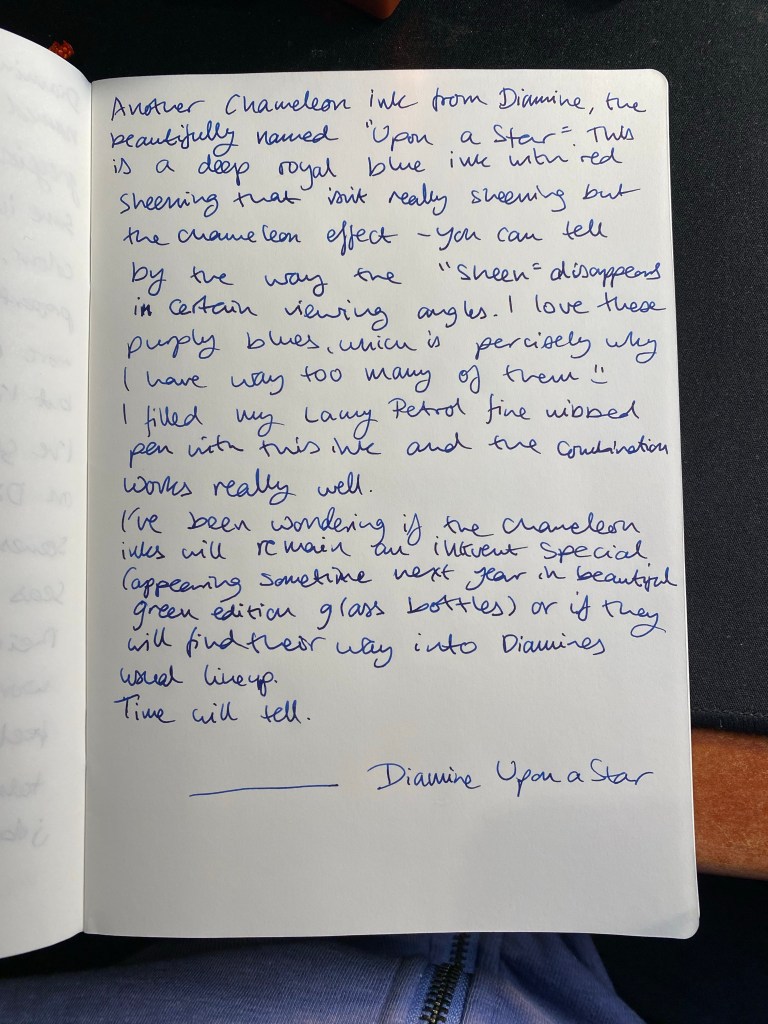 Another Chameleon ink from Diamine, the
beautifully named "Upon a Star". This
is a deep royal blue ink with red
sheening that isn't really sheening but
the chameleon effect - you can tell
by the way the "sheen" disappears
in certain viewing angles. I love these
purply blues, which is percisely why
I have way too many of them :)
I filled my Lamy Petrol fine nibbed
pen with this ink and the combination
works really well.
I've been wondering if the chameleon
inks will remain an inkvent special
(appearing sometime next year in beautiful
green edition glass bottles) or if they
will find their way into Diamines
usual lineup.
Time will tell.
Diamine Upon a Star